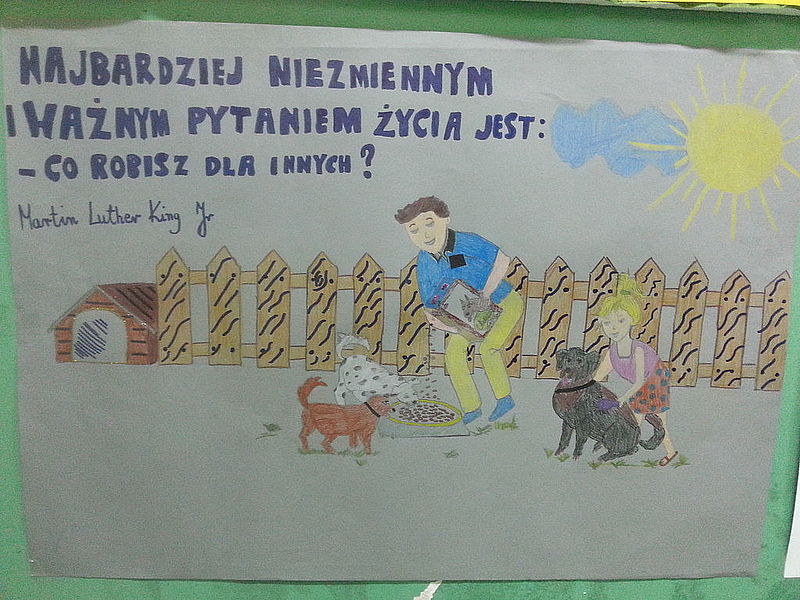 NAJBARDZIEJ NIEZMIENNYM
I WAŻNYM PYTANIEM ŻYCIA JEST:
- CO ROBISZ DLA INNYCH?
Martin Luther King Jr